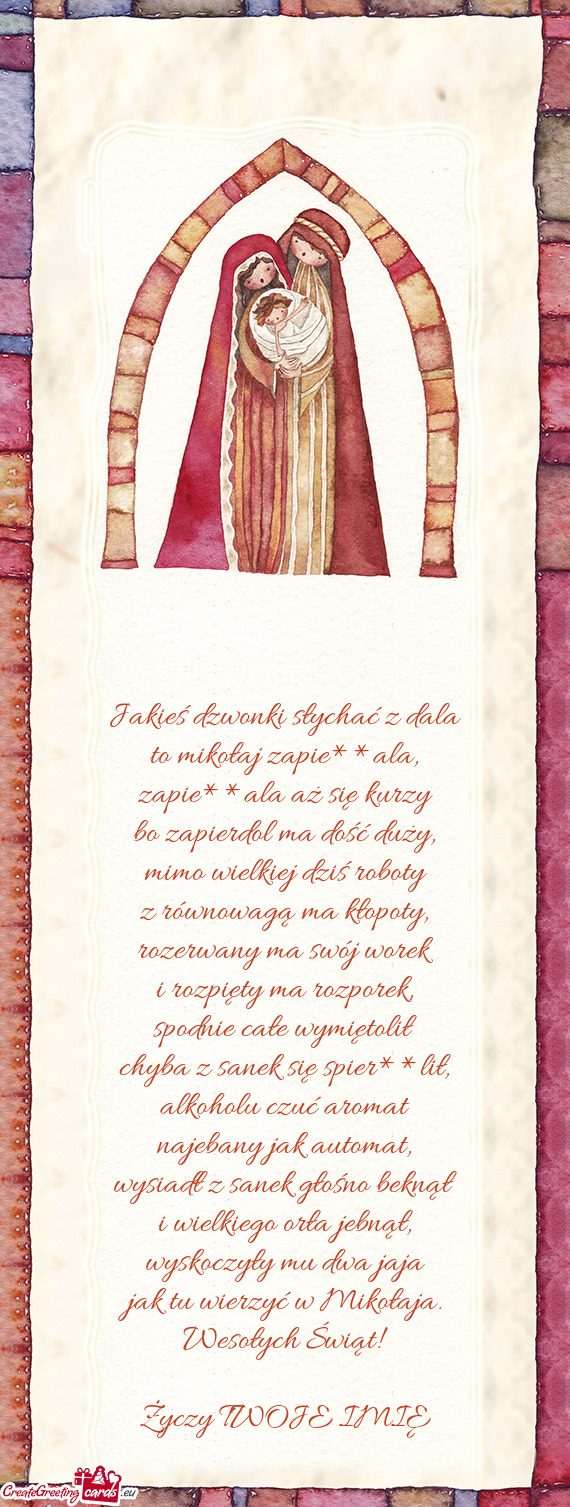 Jakieś dzwonki słychać z dala
to mikołaj zapie* * ala,
zapie* * ala aż się kurzy
bo zapierdol ma dość duży,
mimo wielkiej dziś roboty
z równowagą ma kłopoty,
rozerwany ma swój worek
i rozpięty ma rozporek,
spodnie całe wymiętolił
chyba z sanek się spier* * lił,
alkoholu czuć aromat
najebany jak automat,
wysiadł z sanek głośno beknął
i wielkiego orła jebnął,
wyskoczyły mu dwa jaja
jak tu wierzyć w Mikołaja.
Wesołych Świąt!
Życzy TWOJE IMIĘ
CreateGreeting cards .eu